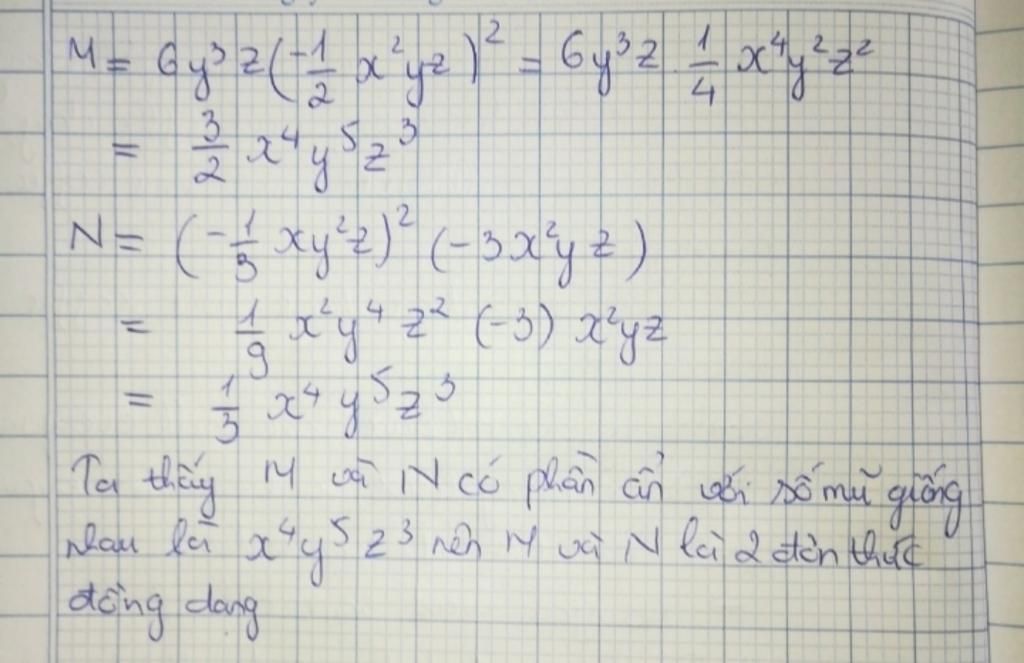 M = 6y³z(-1/2 x²yz)² = 6y³z . 1/4 x⁴y²z²
= 3/2 x⁴y⁵z³
N = (-1/3 xy²z)² (-3x²yz)
= 1/9 x²y⁴z² (-3) x²yz
= 1/3 x⁴y⁵z³
Ta thấy M và N có phần ẩn với số mũ giống
nhau là x⁴y⁵z³ nên M và N là 2 đơn thức
đồng dang